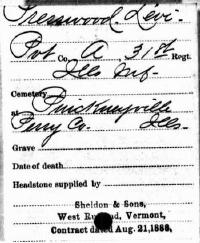 Presswood. Levi.
Pvt Co. A, 31st Regt.
Ills Inf.
Cemetery
at Pinckneyville
Perry Co. Ills.
Grave
Date of death
Headstone supplied by
Sheldon & Sons,
West Rutland, Vermont,
Contract dated Aug. 21, 1888,